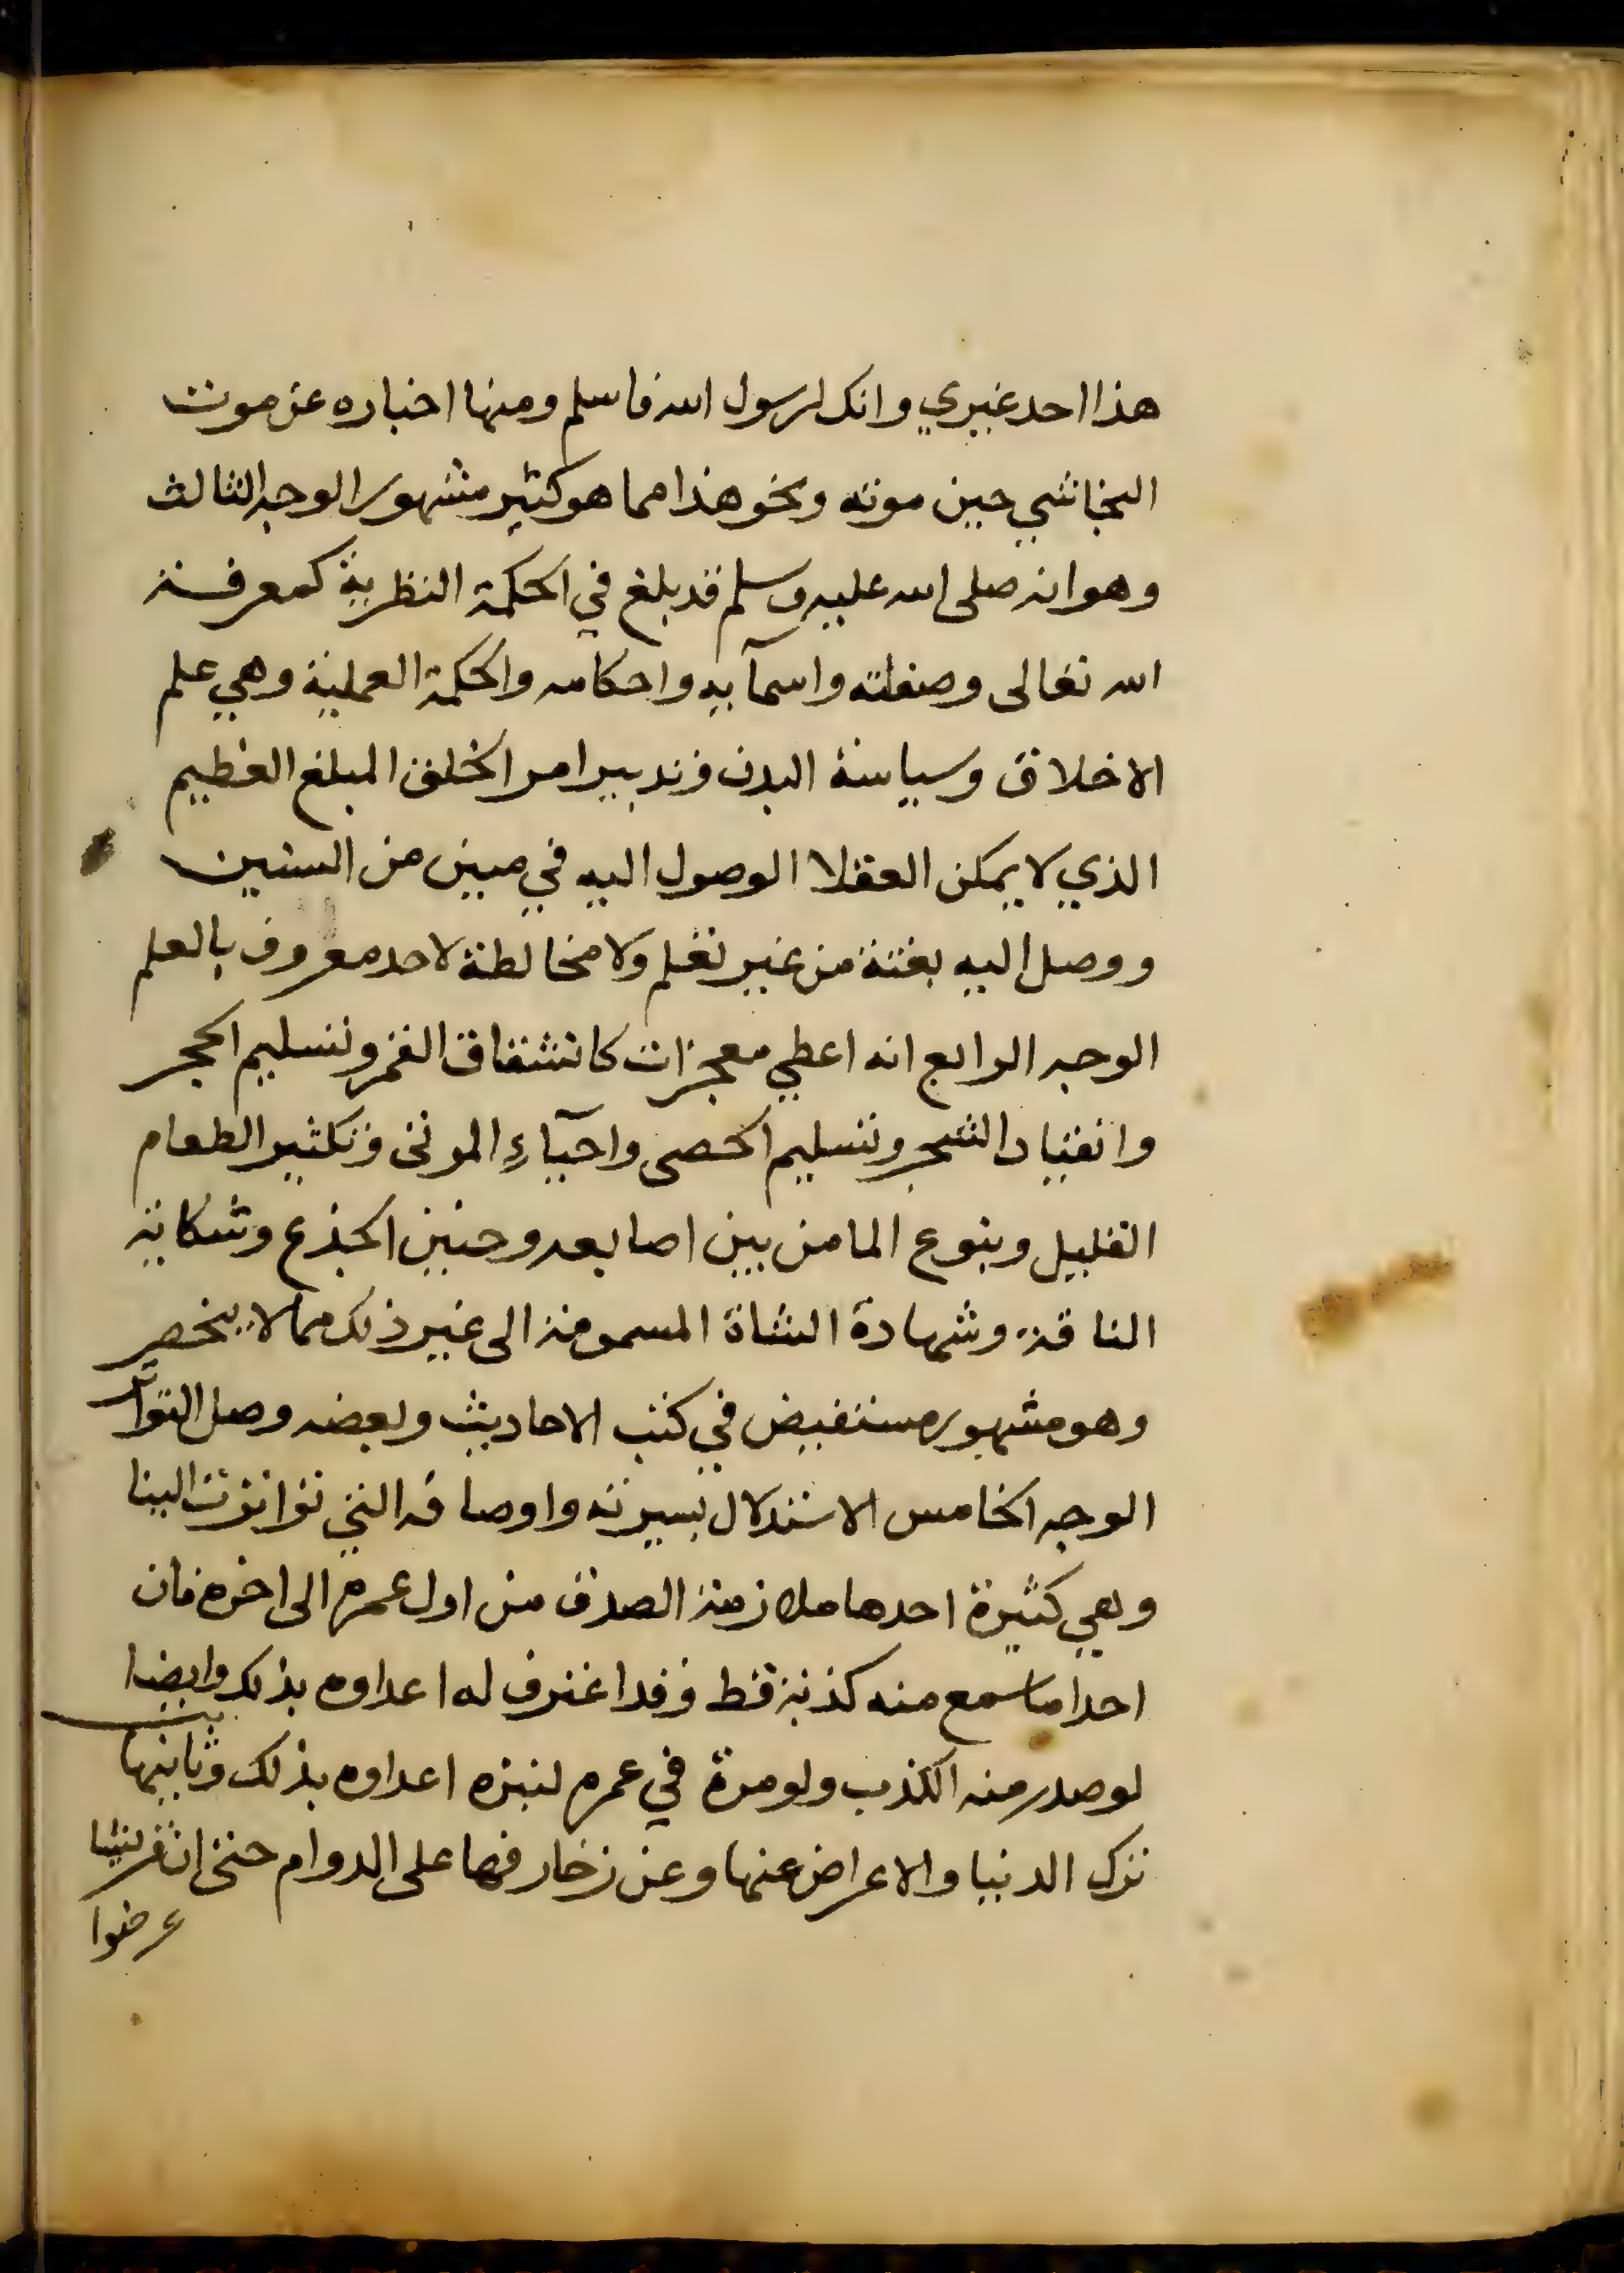 هذا احد غيري وانك لرسول الله فاسلم ومنها اخباره عن موت
النجاشي حين موته ونحو هذا مما هو كثير مشهور الوجه الثالث
وهو انه صلى الله عليه وسلم قد بلغ في الحكمة النظرية كمعرفة
الله تعالى وصفاته واسمآيه واحكامه والحكمة العملية وهي علم
الاخلاق وسياسة البدن وتدبير امر الخلق المبلغ العظيم
الذي لا يمكن العقلا الوصول اليه في مبين من السنين
ووصل اليه بغتة من غير تعلم ولا مخالطة لاحد معروف بالعلم
الوجه الرابع انه اعطي معجزات كانشقاق القمر وتسليم الحجر
وانقياد الشجر وتسليم الحصى واحيآءِ الموتى وتكثير الطعام
القليل وينوع الما من بين اصابعه وحنين الجذع وشكاية
الناقة وشهادة الشاة المسمومة الى غير ذلك مما لا ينحصر
وهو مشهور مستفيض في كتب الاحاديث وبعضه وصل التواتر
الوجه الخامس الاستدلال بسيرته واوصافه التي تواترت الينا
وهي كثيرة احدها ملازمة الصدق من اول عمره الى اخره فان
احدا ما سمع منه كذبة قط وقد اعترف له اعداوه بذلك وايضا
لو صدر منه الكذب ولو مرة في عمره لنبزه اعداوه بذلك وثانيها
ترك الدنيا والاعراض عنها وعن زخارفها على الدوام حتى ان قريشا
عرضوا